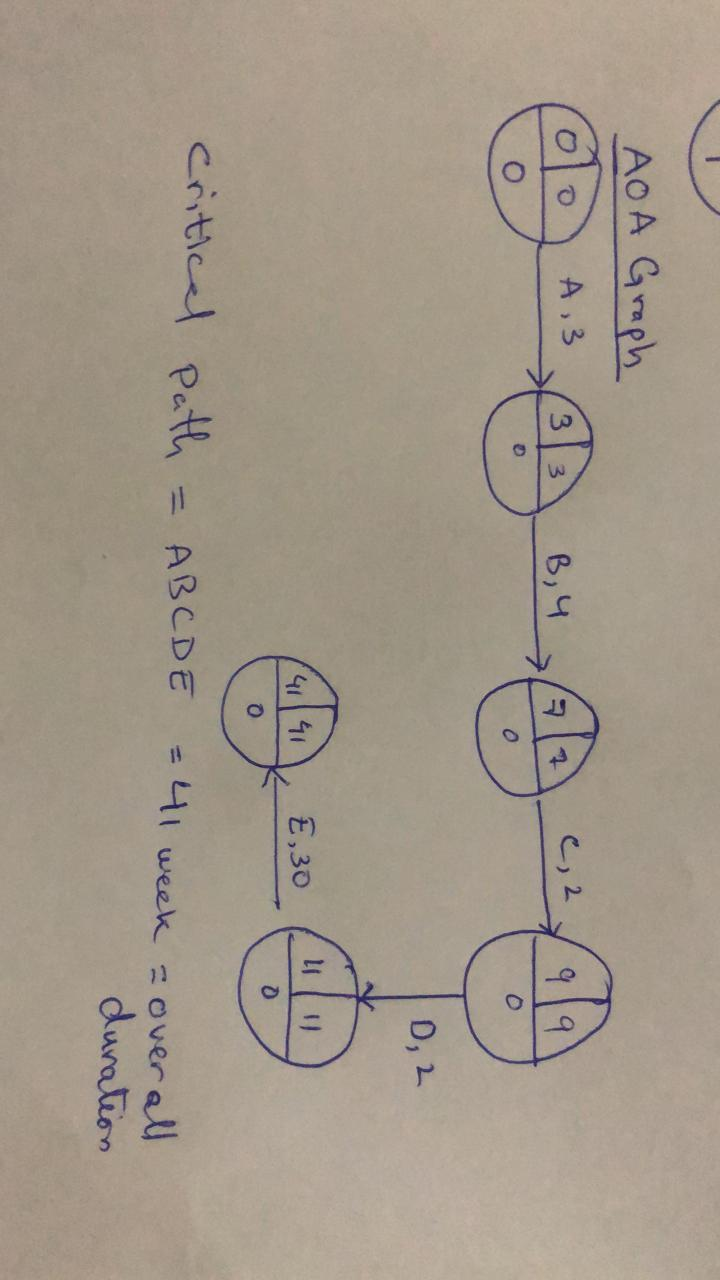 AOA Graph
0 0 0
A,3
3 3 0
B,4
7 7 0
C,2
9 9 0
D,2
11 11 0
E,30
41 41 0
Critical Path = ABCDE = 41 week = overall
duration